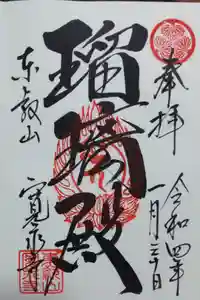 奉拝
令和四年
一月三十日
瑠璃殿
東叡山
寛永寺